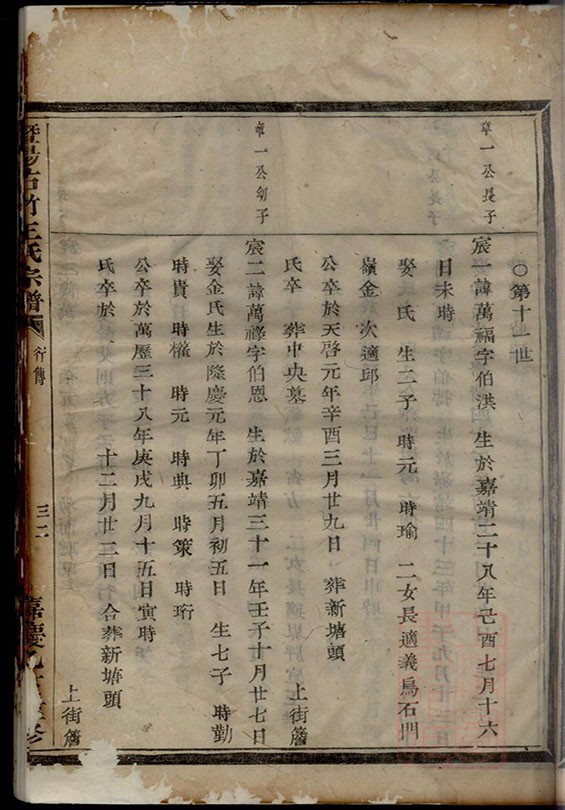 ○第十一世
章一公長子
宸一諱萬福字伯洪 生於嘉靖二十八年己酉七月十六
日未時
娶 氏 生二子 時元 時瑜 二女長適義烏石門
嶺金 次適邱
公卒於天啓元年辛酉三月廿九日 葬新塘頭
氏卒 葬中央墓 上街簷
章一公幼子
宸二諱萬祿字伯恩 生於嘉靖三十一年壬子十月廿七日
娶金氏生於隆慶元年丁卯五月初五日 生七子 時勤
時貴 時權 時元 時典 時策 時珩
公卒於萬歷三十八年庚戌九月十五日寅時
氏卒於 十二月廿三日 合葬新塘頭
上街簷
暨陽古竹王氏宗譜
行傳
三二
嘉慶